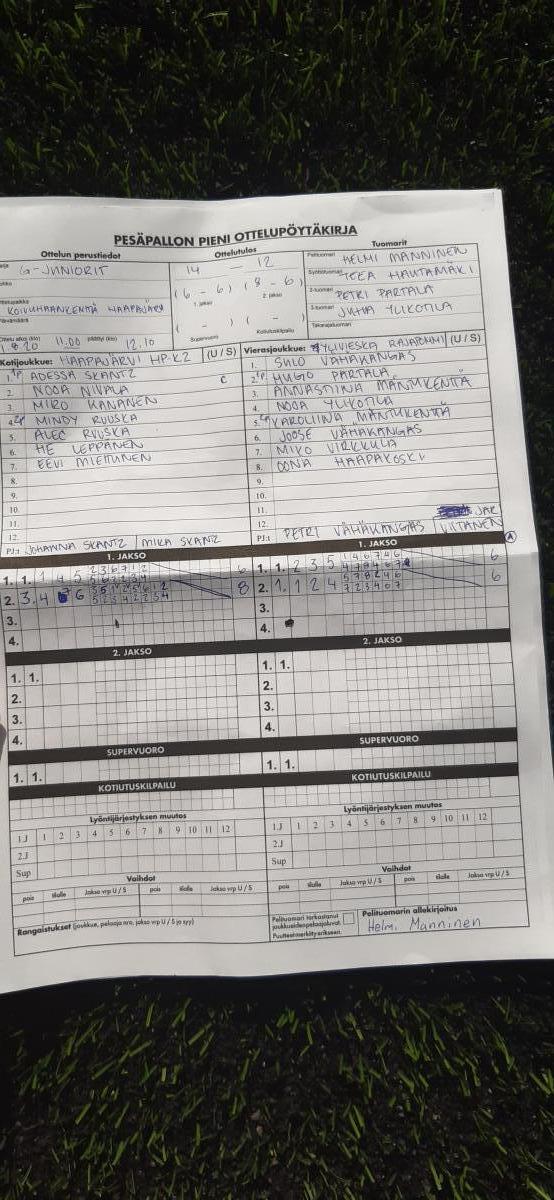 PESÄPALLON PIENI OTTELUPÖYTÄKIRJA
Ottelun perustiedot
G-JUNIORIT
KOIVUHAANKENTÄ HAAPAJÄRVI
Ottelu alkoi (klo) 11.00 päättyi (klo) 12.10
Ottelutulos
14 — 12
(6 - 6) (8 - 6)
1. jakso 2. jakso
( - ) ( - )
Supervuoro Kotiutuskilpailu
Tuomarit
Pelituomari HELMI MANNINEN
Syöttötuomari IEEA HAUTAMÄKI
2-tuomari PETRI PARTALA
3-tuomari JUHA YLIKOTILA
Takarajatuomari
Kotijoukkue: HAAPAJÄRVI HP-K2 (U / S)
1. ADESSA SKANTZ C
2. NOOA NIVALA
3. MIRO KANANEN
4. MINDY RUUSKA
5. ALEC RUUSKA
6. HE LEPPÄNEN
7. EEVI MIETTUNEN
8.
9.
10.
11.
12.
PJ: JOHANNA SKANTZ MIKA SKANTZ
Vierasjoukkue: YLIVIESKA (U / S)
1. SULO VÄHÄKANGAS
2. HUGO PARTALA
3. ANNASTIINA MÄNTUKENTTÄ
4. NOOA YLIKOTILA
5. KAROLIINA MÄNTUKENTTÄ
6. JOOSE VÄHÄKANGAS
7. MIKO VIRKKULA
8. OONA HAAPAKOSKI
9.
10.
11.
12.
PJ: PETRI VÄHÄKANGAS JAR VIITANEN
1. JAKSO
1. 1. 1 4 5 6
2. 3. 4 6 8
3.
4.
2. JAKSO
1. 1.
2.
3.
4.
SUPERVUORO
1. 1.
KOTIUTUSKILPAILU
Lyöntijärjestyksen muutos
1.J 1 2 3 4 5 6 7 8 9 10 11 12
2.J
Sup
Vaihdot
pois tilalle Jakso vrp U / S pois tilalle Jakso vrp U / S
Rangaistukset (joukkue, pelaaja nro, jakso vrp U / S ja syy)
1. JAKSO A
1. 1. 2 3 5 6
2. 1. 1 2 4 6
3.
4.
2. JAKSO
1. 1.
2.
3.
4.
SUPERVUORO
1. 1.
KOTIUTUSKILPAILU
Lyöntijärjestyksen muutos
1.J 1 2 3 4 5 6 7 8 9 10 11 12
2.J
Sup
Vaihdot
pois tilalle Jakso vrp U / S pois tilalle Jakso vrp U / S
Pelituomari tarkastanut
Puutteet merkitty erikseen.
Pelituomarin allekirjoitus
Helmi Manninen